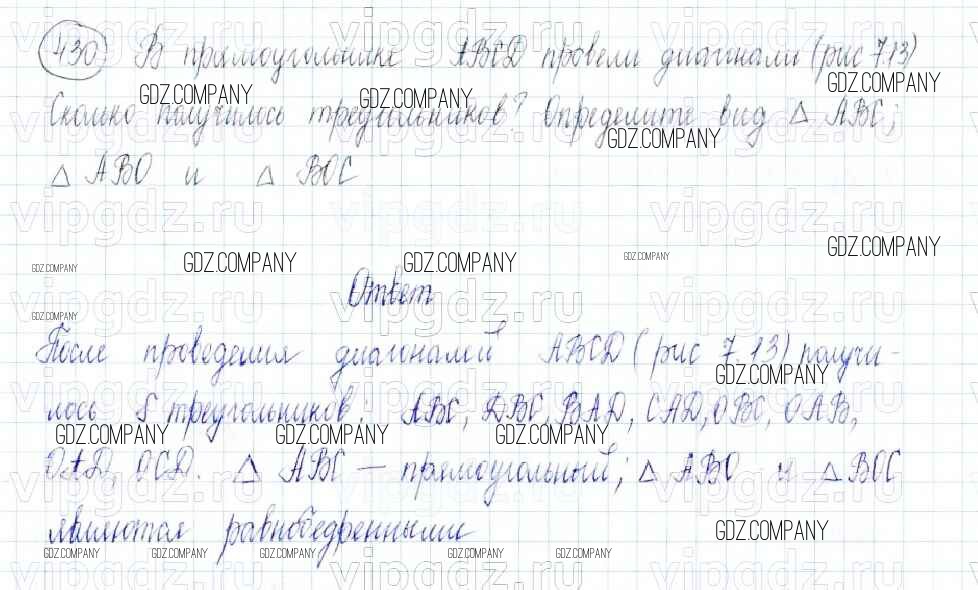 430 В прямоугольнике ABCD провели диагонали (рис 7.13)
Сколько получилось треугольников? Определите вид △ ABC;
△ ABO и △ BOC
Ответ
После проведения диагоналей ABCD (рис 7.13) получи-
лось 8 треугольников: ABC, DBC, BAD, CAD, OBC, OAB,
OAD, OCD. △ ABC — прямоугольный; △ ABO и △ BOC
являются равнобедренными